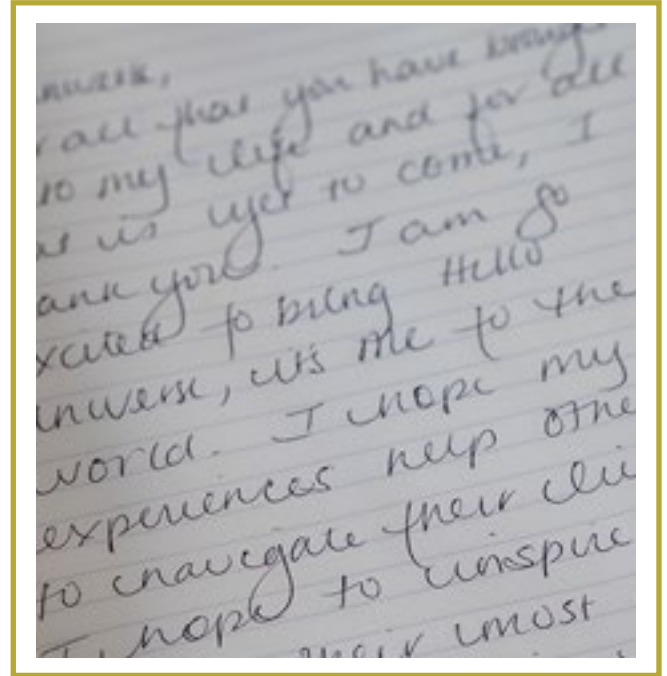 all that you have
to my life and for all
is yet to come, I
you. I am so
to bring Hello
it's me to the
world. I hope my
experiences help
to navigate their
I hope to inspire
their most